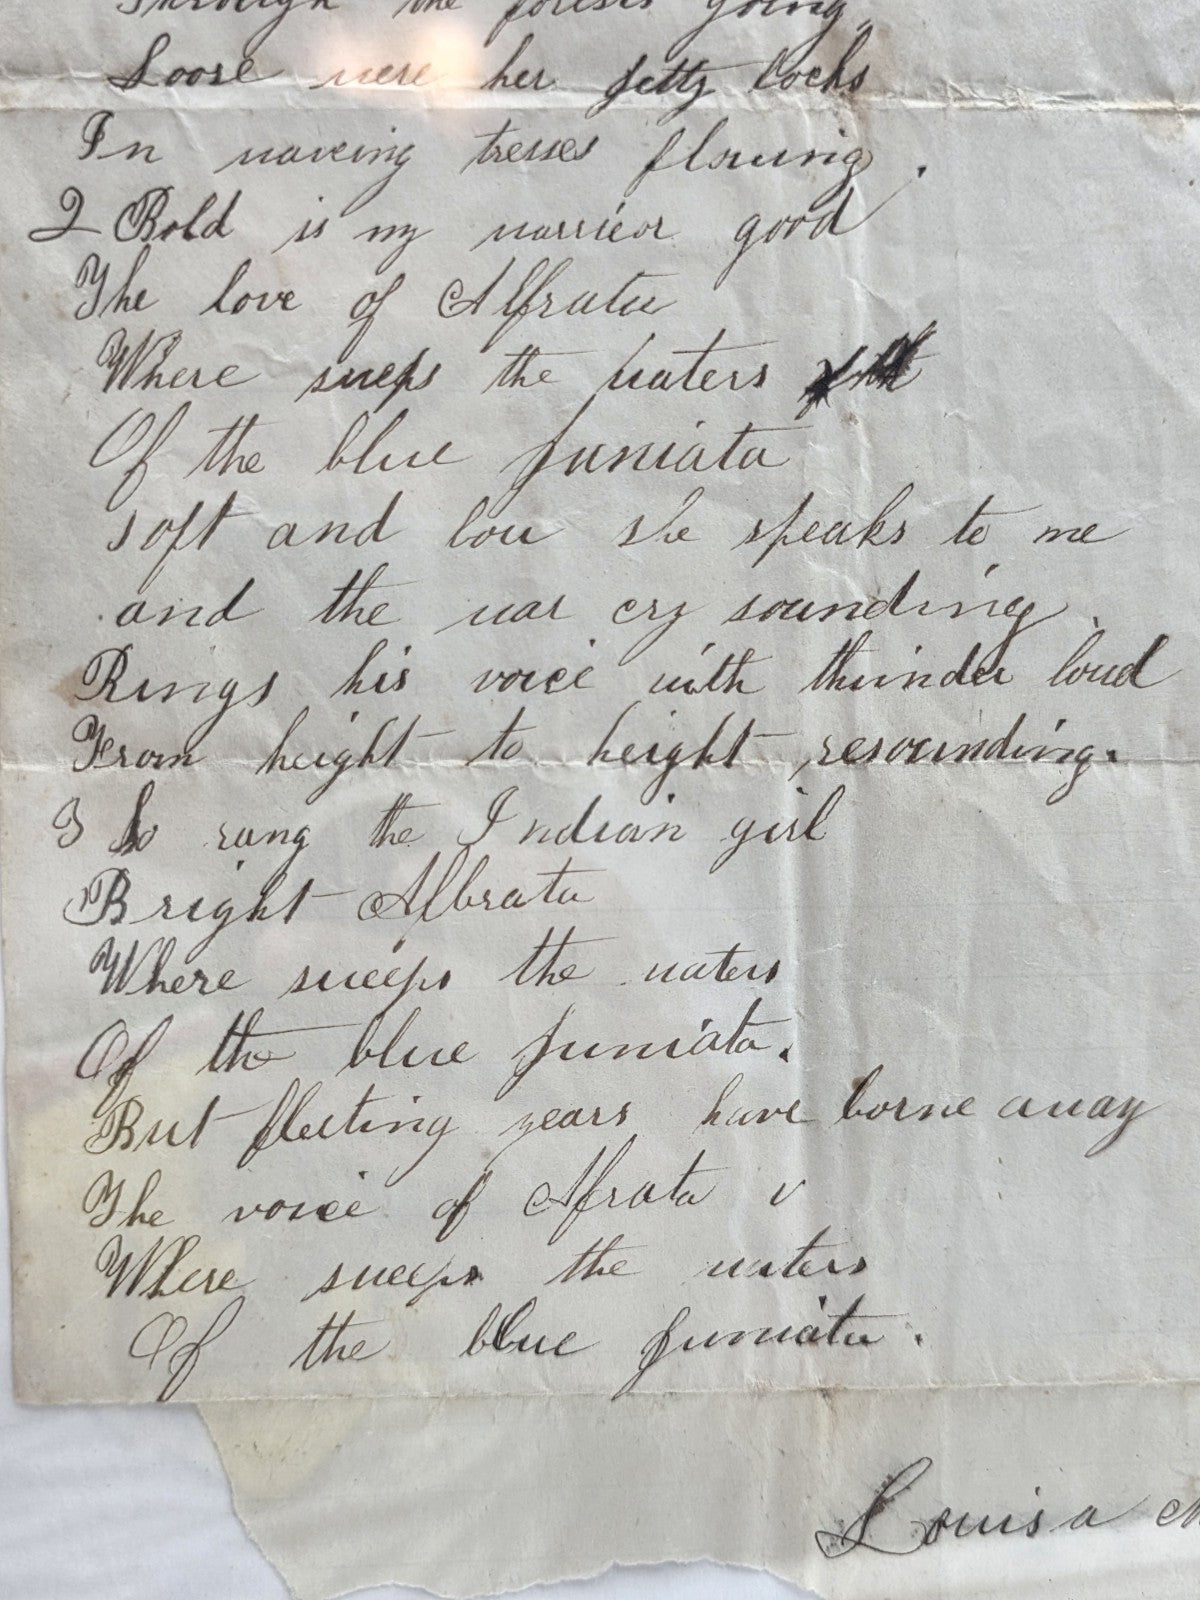 Through the forests going
Loose were her jetty locks
In waveing tresses flowing.
2 Bold is my warrior good
The love of Alfrata
Where sweeps the waters
Of the blue Juniata
soft and low she speaks to me
and the war cry sounding
Rings his voice with thunder loud
From height to height resounding.
3 So sang the Indian girl
Bright Alfrata
Where sweeps the waters
Of the blue Juniata.
But fleeting years have borne away
The voice of Alfrata v
Where sweeps the waters
Of the blue Juniata.
Louisa